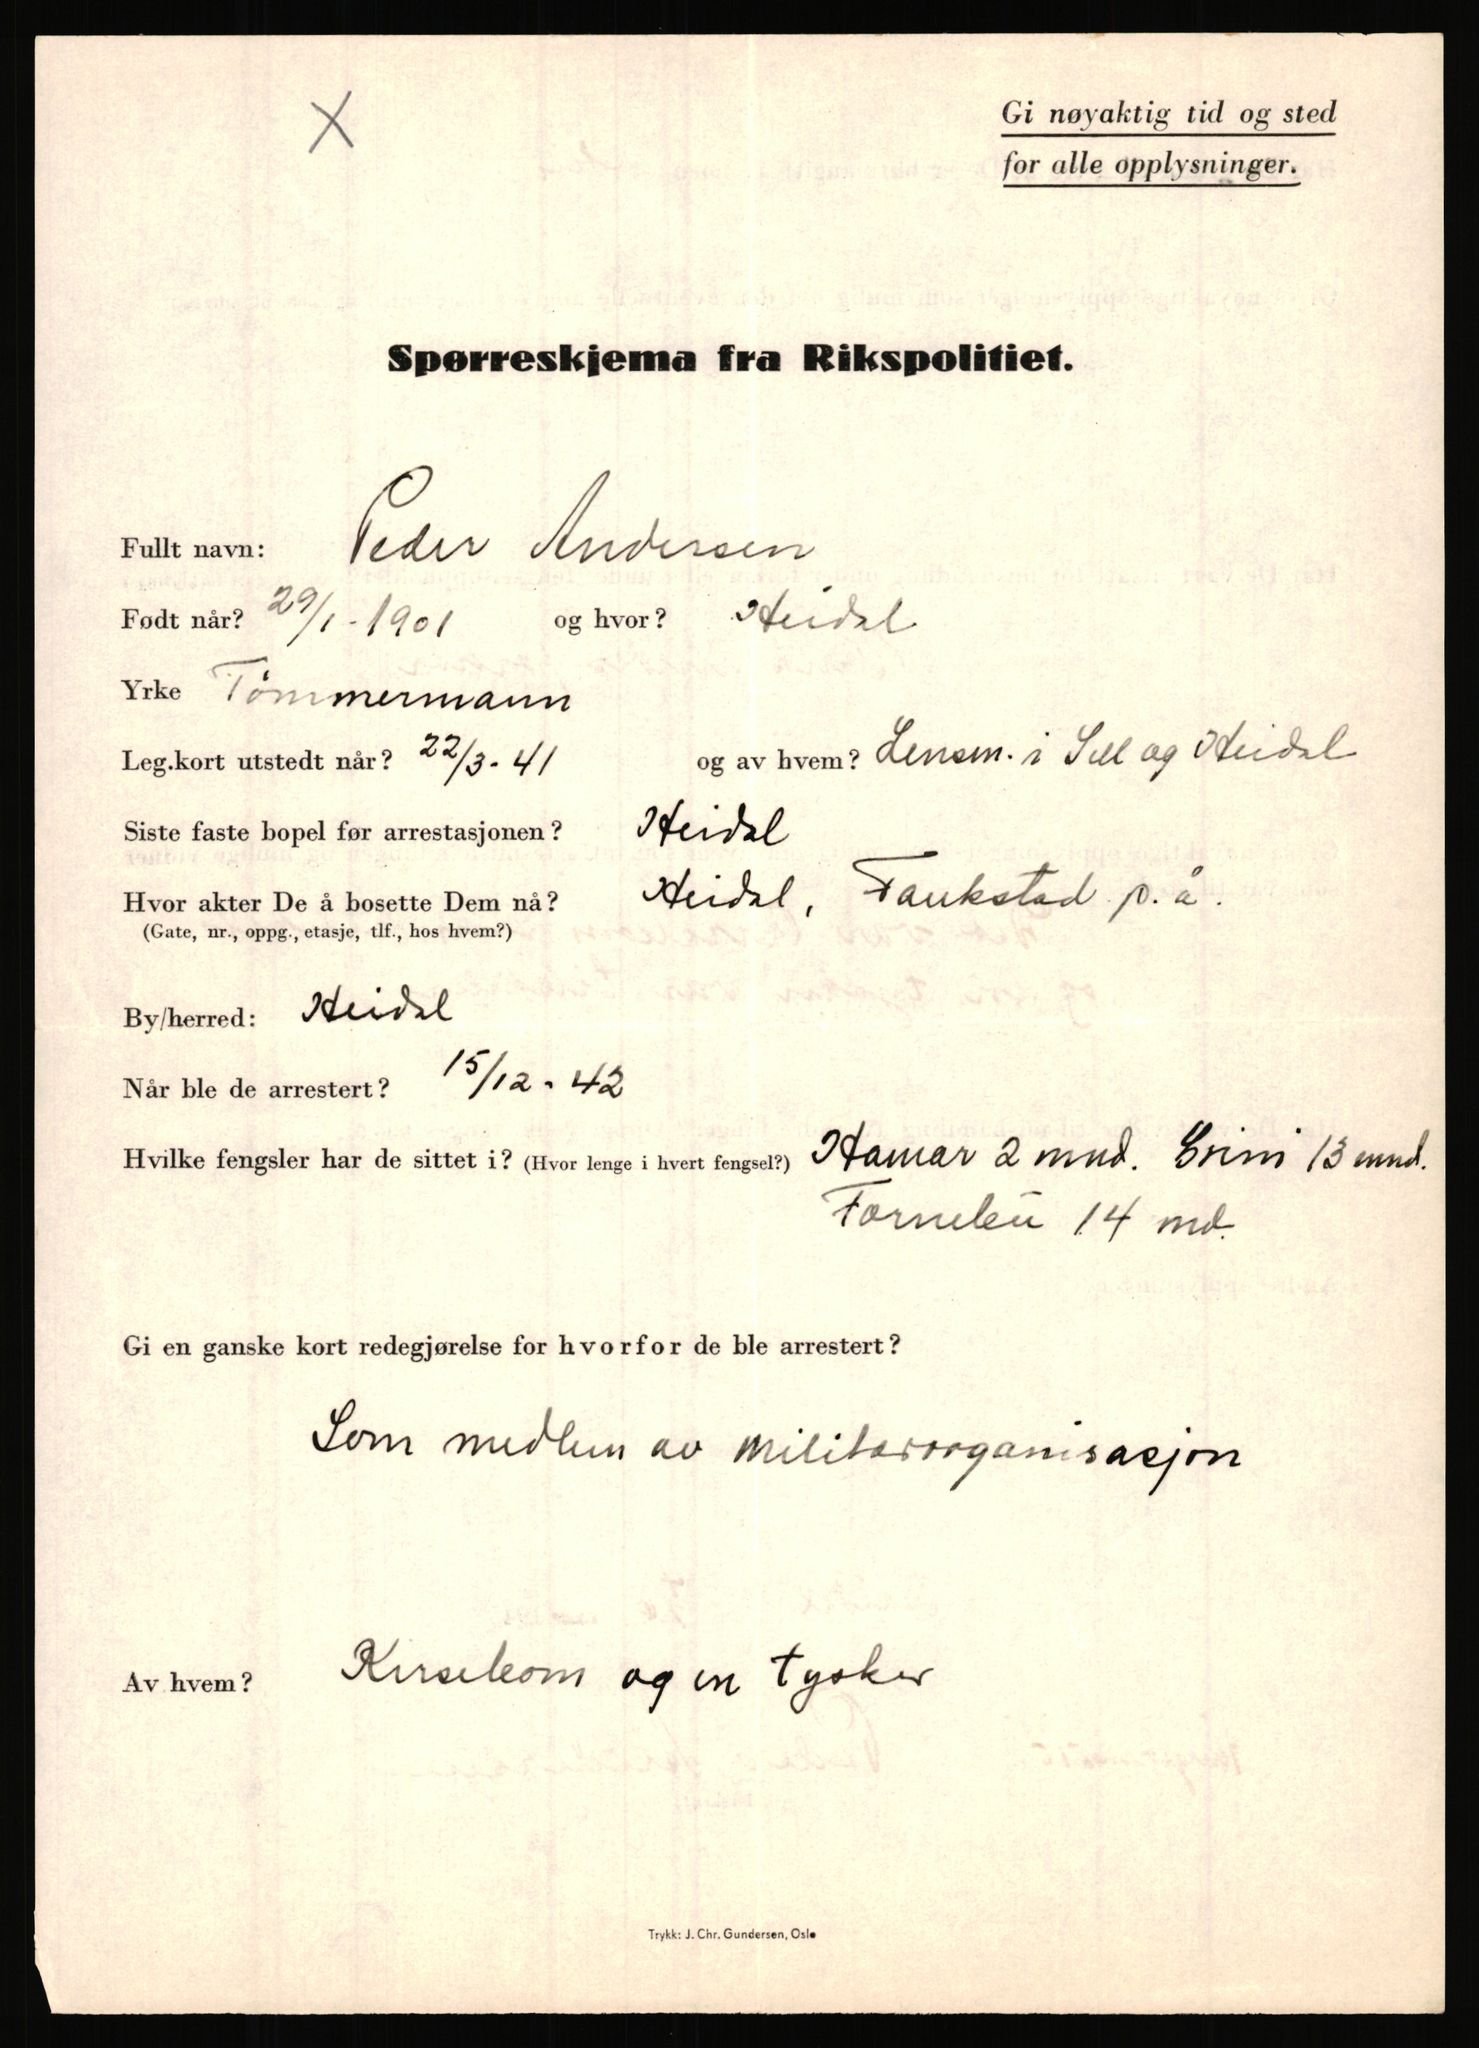 X
Gi nøyaktig tid og sted
for alle opplysninger.
Spørreskjema fra Rikspolitiet.
Fullt navn: Peder Andersen
Født når? 29/1-1901 og hvor? Heidal
Yrke Tømmermann
Leg.kort utstedt når? 22/3-41 og av hvem? Lensm. i Sel og Heidal
Siste faste bopel før arrestasjonen? Heidal
Hvor akter De å bosette Dem nå? Heidal, Faukstad p.å.
(Gate, nr., oppg., etasje, tlf., hos hvem?)
By/herred: Heidal
Når ble de arrestert? 15/12-42
Hvilke fengsler har de sittet i? (Hvor lenge i hvert fengsel?) Hamar 2 mnd. Grini 13 mnd.
Fornebu 14 md.
Gi en ganske kort redegjørelse for hvorfor de ble arrestert?
Som medlem av militærorganisasjon
Av hvem? og en tysker
Trykk: J. Chr. Gundersen, Oslo